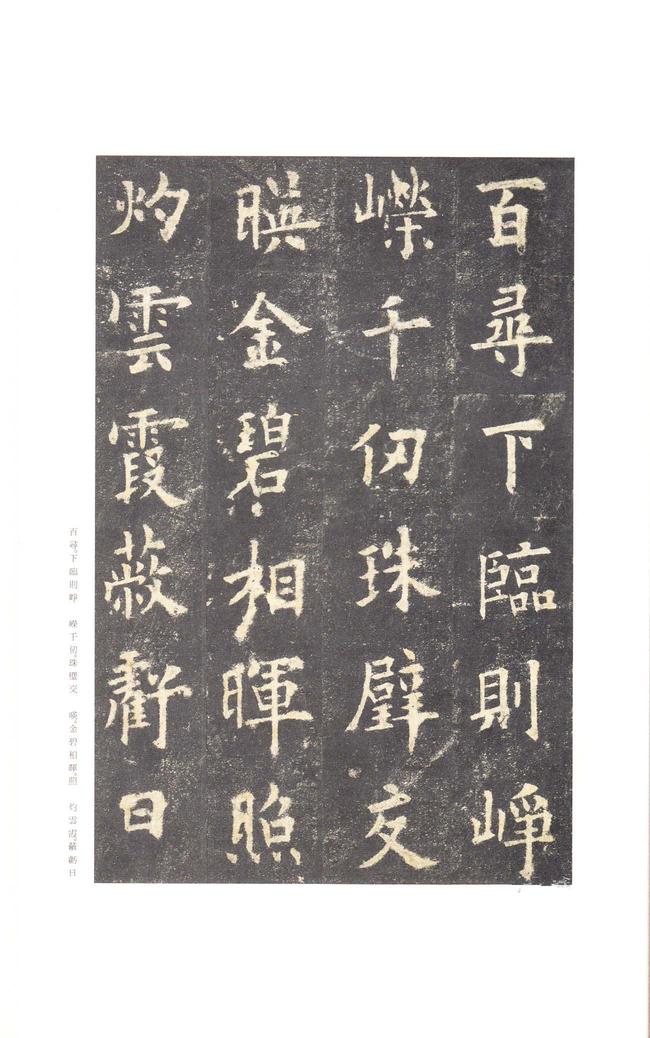 百尋下臨則崢
嶸千仞珠璧交
暎金碧相暉照
灼雲霞蔽虧日
百尋。下臨則崢 嶸千仞。珠璧交 暎。金碧相暉。照 灼雲霞。蔽虧日